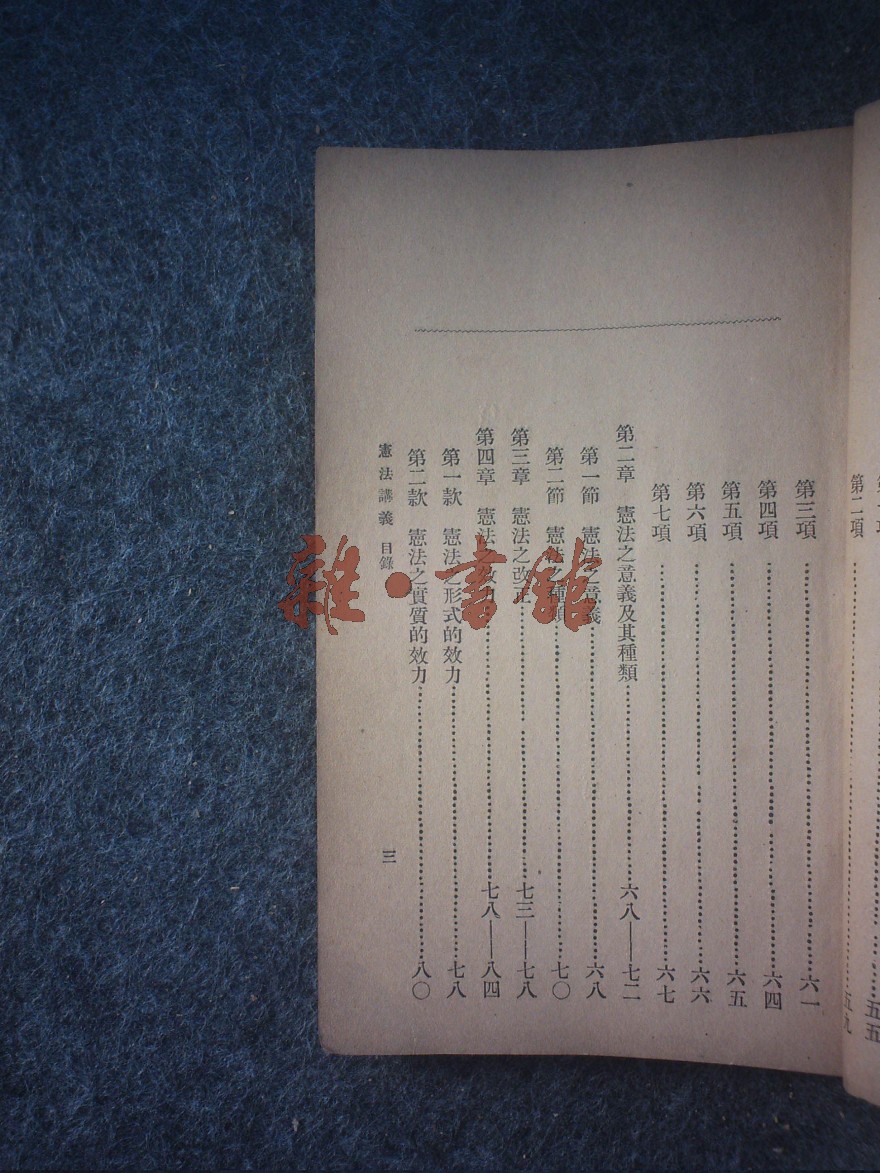 第二項……五九
第三項……六一
第四項……六四
第五項……六五
第六項……六六
第七項……六七
第二章 憲法之意義及其種類……六八——七二
第一節 憲法之意義……六八
第二節 憲法 種類……七〇
第三章 憲法之改正……七三——七八
第四章 憲法之效力……七八——八四
第一款 憲法之形式的效力……七八
第二款 憲法之實質的效力……八〇
憲法講義 目錄
三
雜·書館